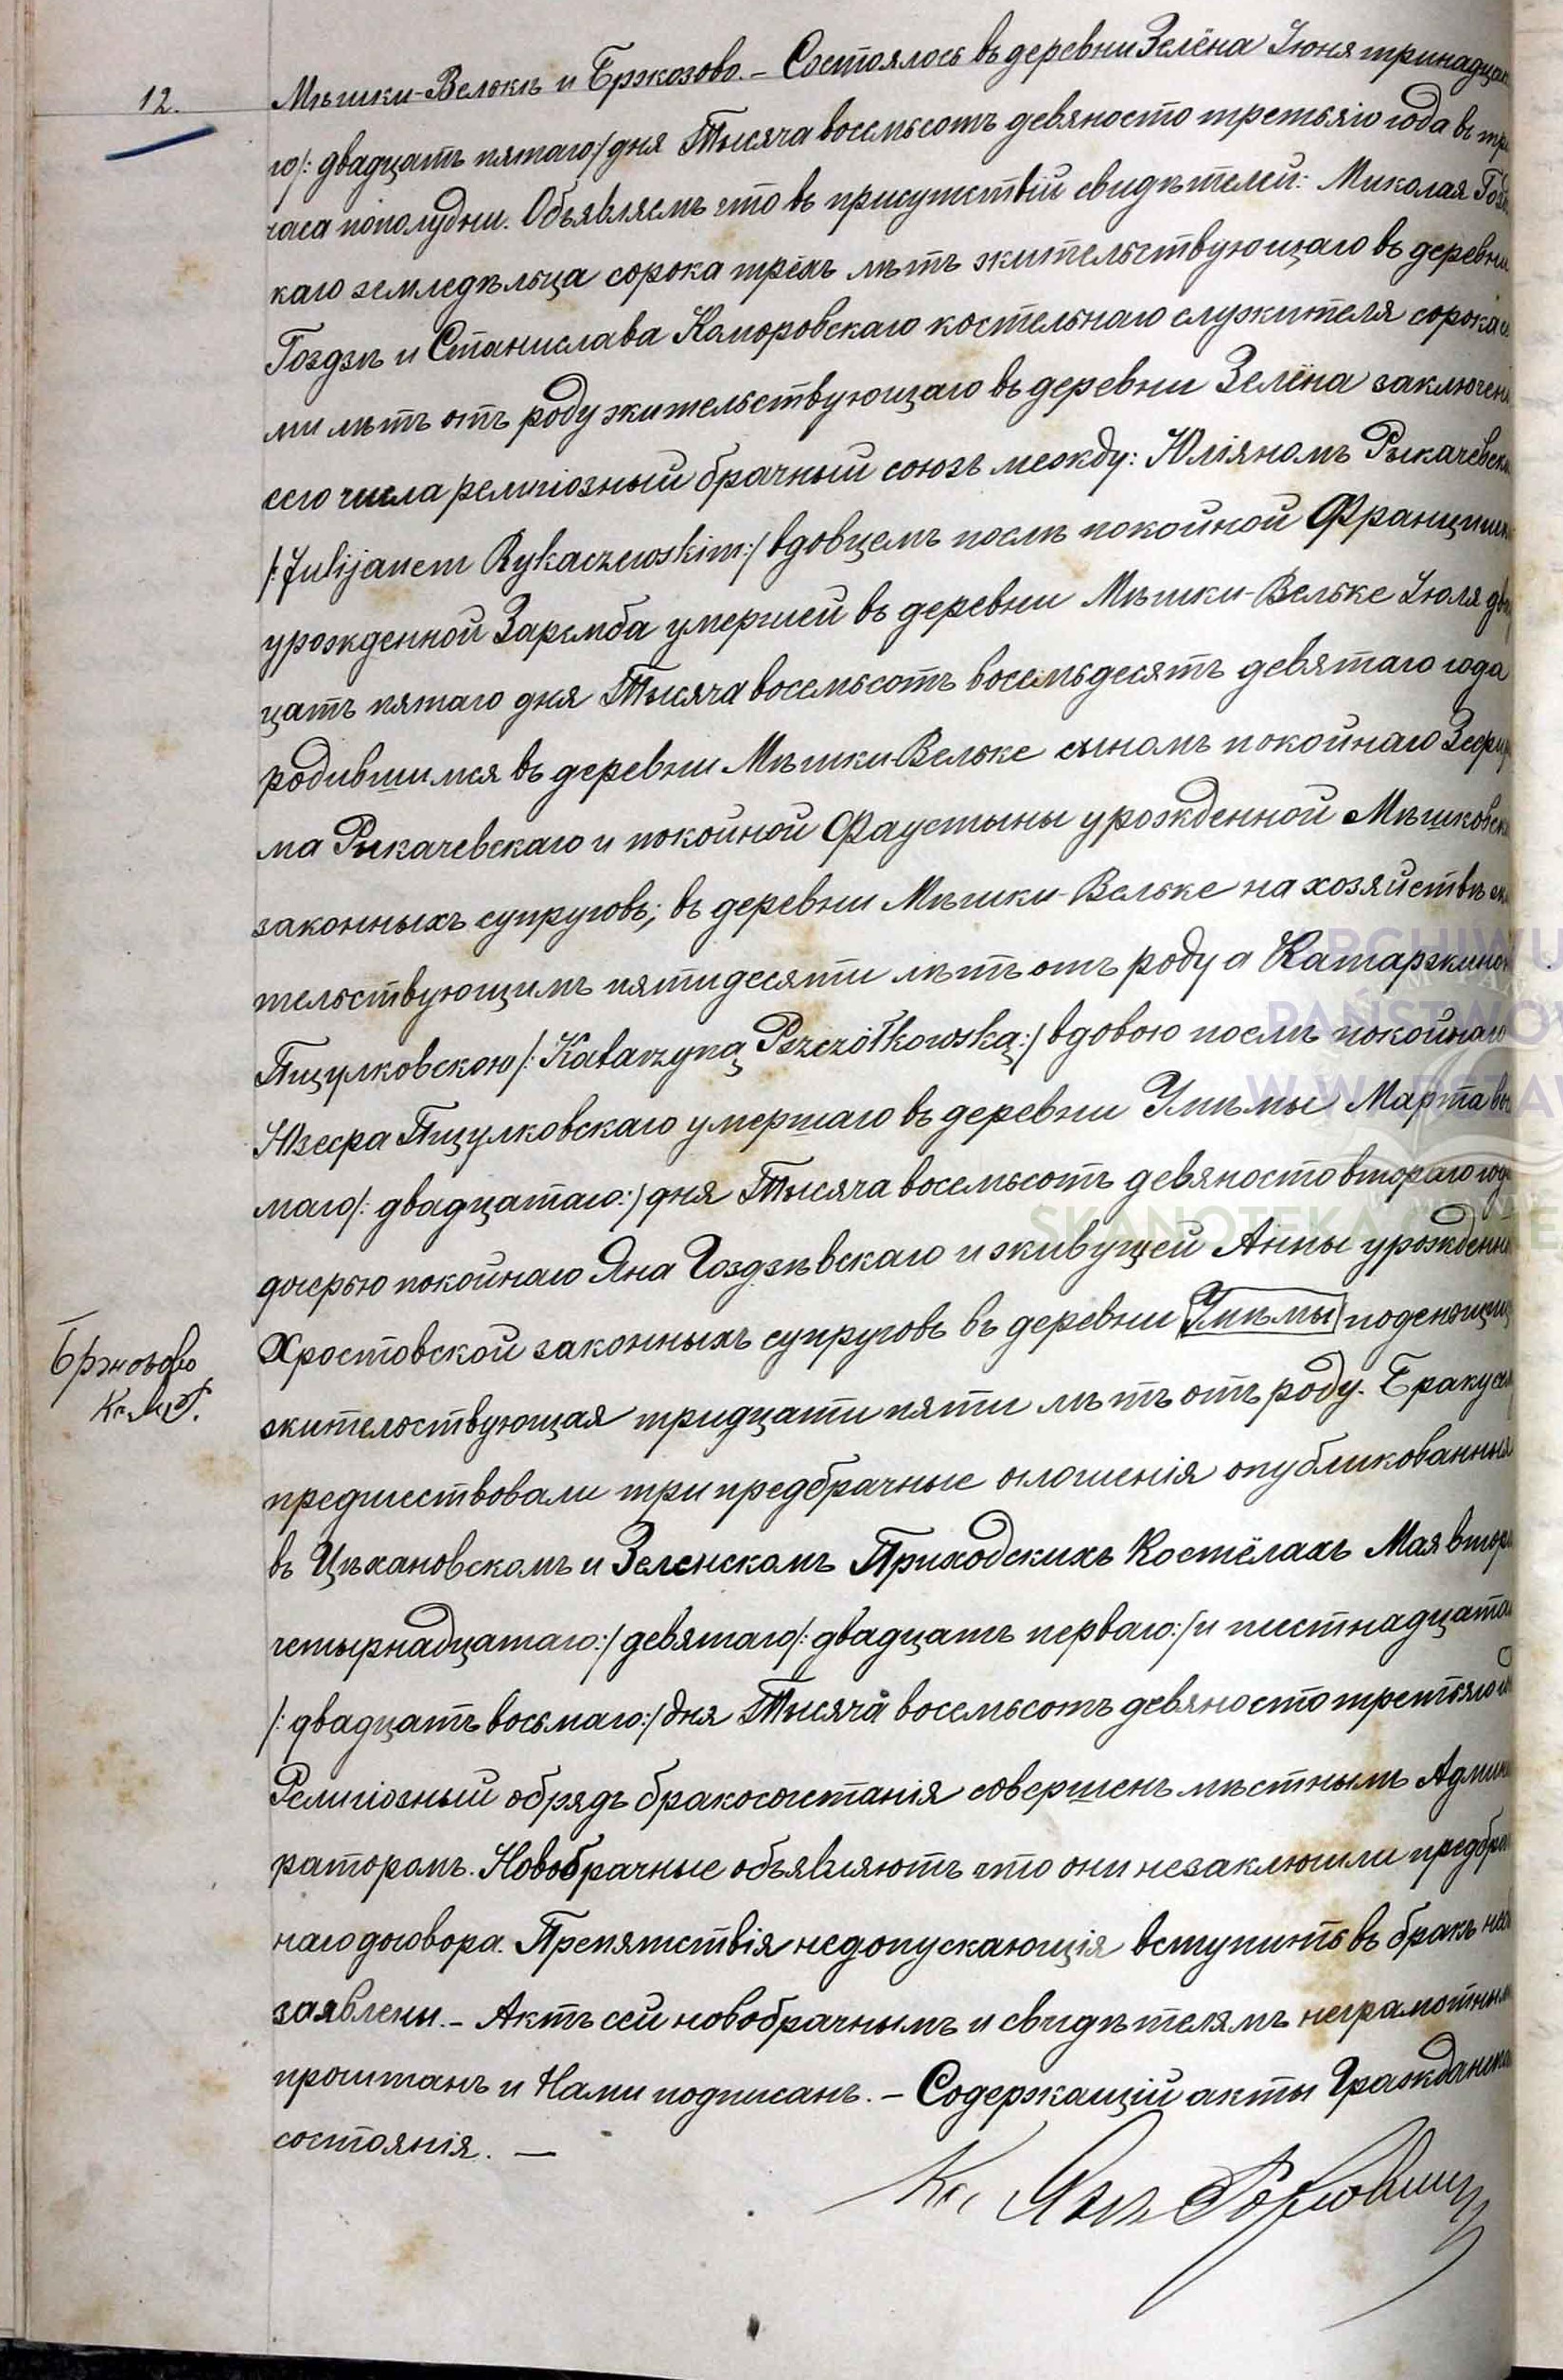 12.
Мѣшки-Велькѣ и Бржозово. – Состоялось въ деревни Зелёна Іюня тринадцат
го/: двадцать пятаго:/ дня Тысяча восемьсотъ девяносто третьяго года въ три
часа пополудни. Объявляемъ что въ присутствіи свидѣтелей: Миколая Гозд
каго земледѣльца сорока трёхъ лѣтъ жительствующаго въ деревни
Гоздзѣ и Станислава Коморовскаго костельнаго служителя сорока се
ми лѣтъ отъ роду жительствующаго въ деревни Зелёна заключенъ
сего числа религіозный брачный союзъ между: Юліяномъ Рыкачевски
/:Julijanem Rykaczewskim:/ вдовцемъ послѣ покойной Францишк
урожденной Заремба умершей въ деревни Мѣшки-Вельке Іюля два
цать пятаго дня Тысяча восемьсотъ восемьдесятъ девятаго года
родившимся въ деревни Мѣшки-Вельке сыномъ покойнаго Зефири
ма Рыкачевскаго и покойной Фаустыны урожденной Мѣшковск
законныхъ супруговъ; въ деревни Мѣшки-Вельке на хозяйствѣ жи
тельствующимъ пятидесяти лѣтъ отъ роду а Катаржиной
Пщулковскою /: Katarzyną Pszczółkowską:/ вдовою послѣ покойнаго
Юзефа Пщулковскаго умершаго въ деревни Умѣмы Марта вось
маго/: двадцатаго:/ дня Тысяча восемьсотъ девяносто втораго года
дочерью покойнаго Яна Гоздзѣвскаго и живущей Анны урожденн
Хростовской законныхъ супруговъ въ деревни Умѣмы поденщиц
Бржозово
Кс. Я.Р.
жительствующая тридцати пяти лѣтъ отъ роду. Браку сем
предшествовали три предбрачные оглошенія опубликованныя
въ Цѣхановскомъ и Зеленскомъ Приходскихъ Костёлахъ Мая втор
четырнадцатаго:/ девятаго/: двадцать перваго:/ и шестнадцатаг
/: двадцать восьмаго:/ дня Тысяча восемьсотъ девяносто третьяго
Религіозный обрядъ бракосочетанія совершенъ мѣстнымъ Админ
раторомъ. Новобрачные объявляютъ что они незаключили предбрач
наго договора. Препятствія недопускающія вступить въ бракъ не
заявлены. – Актъ сей новобрачнымъ и свидѣтелямъ неграмотным
прочитанъ и Нами подписанъ. – Содержащій акты Гражданска
состоянія. –
Кс. Янъ
ARCHIWU
PAŃSTWOW
W WARSZAW
SKANOTEKA.GENE